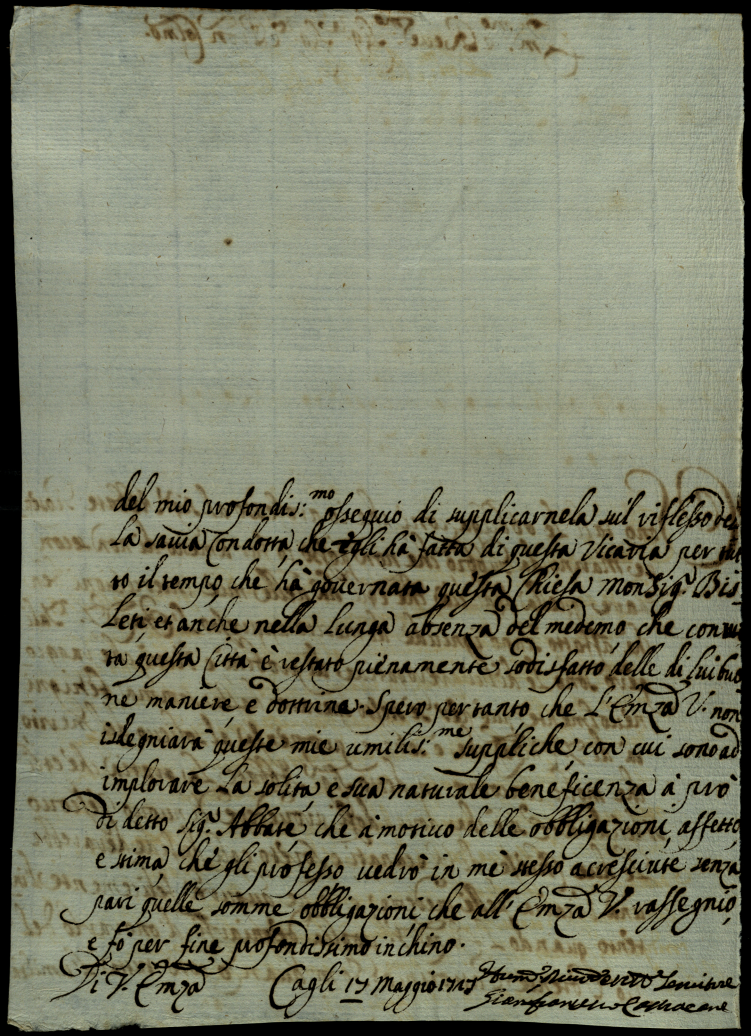 del mio profondis:mo ossequio di supplicarnela sù'l riflesso del
la savia condotta, che egli hà fatta di questa Vicaria per tut
to il tempo, che hà governata questa Chiesa Monsig.r Bis_
leti et anche nella lunga absenza del medemo che con tut
ta questa Città è restato pienamente sodisfatto delle di lui buo
ne maniere e dottrine. Spero pertanto che L'Emza V. non
isdegniarà queste mie umilis:me suppliche con cui sono ad
implorare La solita, e sua naturale beneficenza à prò
di detto Sig.r Abbate, che à motivo delle obbligazioni, affetto,
e stima, che gli professo vedrò in mè stesso acresciute senza
pari quelle somme obbligazioni, che all'Emza V. rassegnio,
e fò per fine profondissimo inchino.
Di V. Emza Cagli 17 Maggio 1717 Servitore